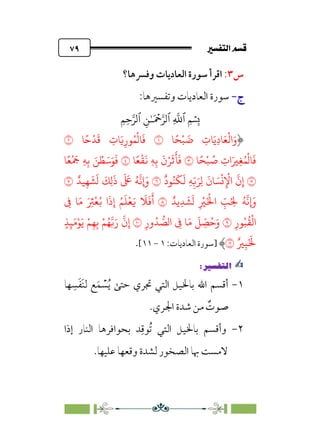 قسم التفسير ٧٩
س٣: اقرأ سورة العاديات وفسرها؟
ج- سورة العاديات وتفسيرها:
بِسْمِ ٱللَّهِ ٱلرَّحْمَٰنِ ٱلرَّحِيمِ
﴿وَالْعَادِيَاتِ ضَبْحًا ۝ فَالْمُورِيَاتِ قَدْحًا ۝
فَالْمُغِيرَاتِ صُبْحًا ۝ فَأَثَرْنَ بِهِ نَقْعًا ۝ فَوَسَطْنَ بِهِ جَمْعًا
۝ إِنَّ الْإِنْسَانَ لِرَبِّهِ لَكَنُودٌ ۝ وَإِنَّهُ عَلَىٰ ذَٰلِكَ لَشَهِيدٌ ۝
وَإِنَّهُ لِحُبِّ الْخَيْرِ لَشَدِيدٌ ۝ أَفَلَا يَعْلَمُ إِذَا بُعْثِرَ مَا فِي
الْقُبُورِ ۝ وَحُصِّلَ مَا فِي الصُّدُورِ ۝ إِنَّ رَبَّهُمْ بِهِمْ يَوْمَئِذٍ
لَخَبِيرٌ ۝﴾ [سورة العاديات: ١ - ١١].
التفسير:
١- أقسم الله بالخيل التي تجري حتى يُسْمَع لنَفَسِها
صوتٌ من شدة الجري.
٢- وأقسم بالخيل التي تُوقِد بحوافرها النار إذا
لامست بها الصخور لشدة وقعها عليها.